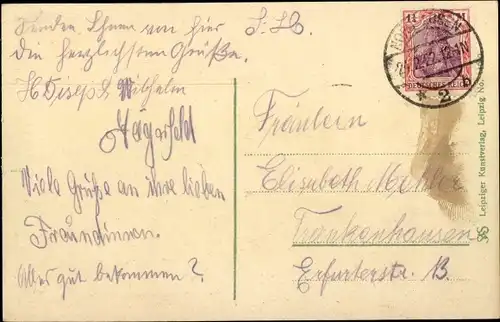 Senden Ihnen von hier
die herzlichsten Grüße.
Wilhelm
Viele Grüße an ihre lieben
Freundinnen.
Alles gut bekommen?
Fräulein
Elisabeth
Frankenhausen
Erfurterstr. 13.
DEUTSCHES REICH
* 2 b
Leipziger Kunstverlag, Leipzig No.